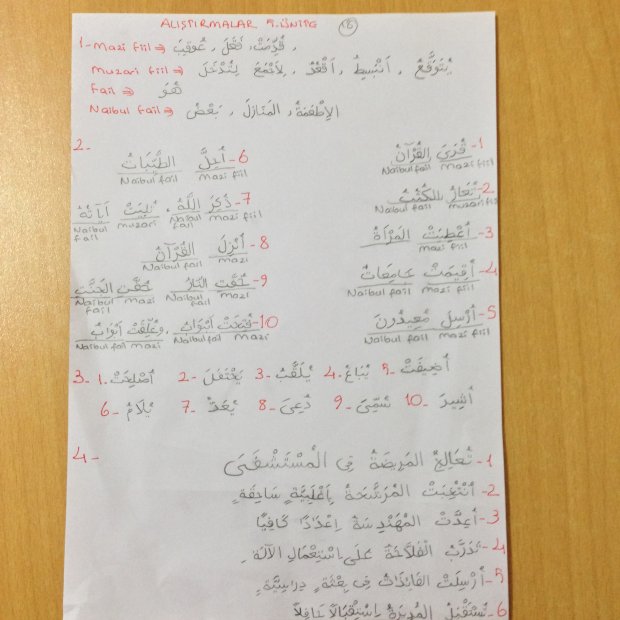 ALIŞTIRMALAR 5.ÜNİTE (15)
1-Mazi fiil ⇒ قُدِّمَتْ، فَعَلَ، عُوقِبَ،
Muzari fiil ⇒ يُتَوَقَّعُ، أَنْبَسِطُ، أَقْعُدُ، لِأَجْمَعَ لِتُدْخَلَ
Fail ⇒ هُوَ
Naibul fail ⇒ الاِطْعَمَةُ، المَنَازِلَ، بَعْضُ
2-
1- قُرِئَ القُرْآنُ
Naibul fail Mazi fiil
2- تُعَارُ الكُتُبُ
Naibul fail muzari fii
3- أُعْطِيَتْ المَرْأَةُ
Mazi fiil
4- أُقِيمَتْ جَامِعَاتُ
Naibul fail Mazi fiil
5- أُرْسِلَ مُعِيدُونَ
Naibul fail Mazi fiil
6- أُحِلَّ الطَّيِّبَاتُ
Naibul fail Mazi fiil
7- ذُكِرَ اللَّهُ، تُلِيَتْ آيَاتُهُ
Naibul fail muzari Naibul fail Mazi fiil
8- أُنْزِلَ القُرْآنُ
Naibul fail Mazi
9- حُفَّتِ النَّارُ حُفَّتِ الجَنَّةُ
Naibul fail Mazi Naibul fail Mazi
10- فُتِحَتْ أَبْوَابُ، وَغُلِّقَتْ أَبْوَابُ
Naibul fail Mazi Naibul fail Mazi
3- 1. أُصْلِحَتْ 2- يُحْتَفَلَ 3- يُلَقَّبُ 4. يُبَاعُ 5- أُضِيفَتْ
6- يُلَامُ 7- يُعَدُّ 8- دُعِيَ 9- سُمِّيَ 10- أُشِيرَ
4-
1- تُعَالَجُ المَرِيضَةُ فِي الْمُسْتَشْفَى
2- اُنْتُخِبَتْ المُرَشَّحَةُ بِأَغْلَبِيَّةٍ سَاحِقَةٍ
3- أُعِدَّتْ المُهَنْدِسَةُ إِعْدَادًا كَافِيًا
4- تُدَرَّبُ الْفَلَّاحَةُ عَلَى اِسْتِعْمَالِ الآلَةِ
5- أُرْسِلَتْ القَائِدَاتُ فِي بِعْثَةٍ دِرَاسِيَّةٍ
6- تُسْتَقْبَلُ المُدِيرَةُ اِسْتِقْبَالًا حَافِلًا